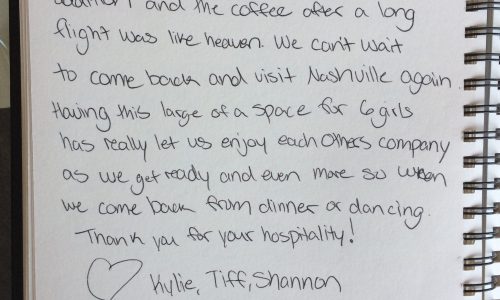 addition! and the coffee after a long
flight was like heaven. We can't wait
to come back and visit Nashville again.
Having this large of a space for 6 girls
has really let us enjoy each others company
as we get ready and even more so when
we come back from dinner or dancing.
Thank you for your hospitality!
Kylie, Tiff, Shannon